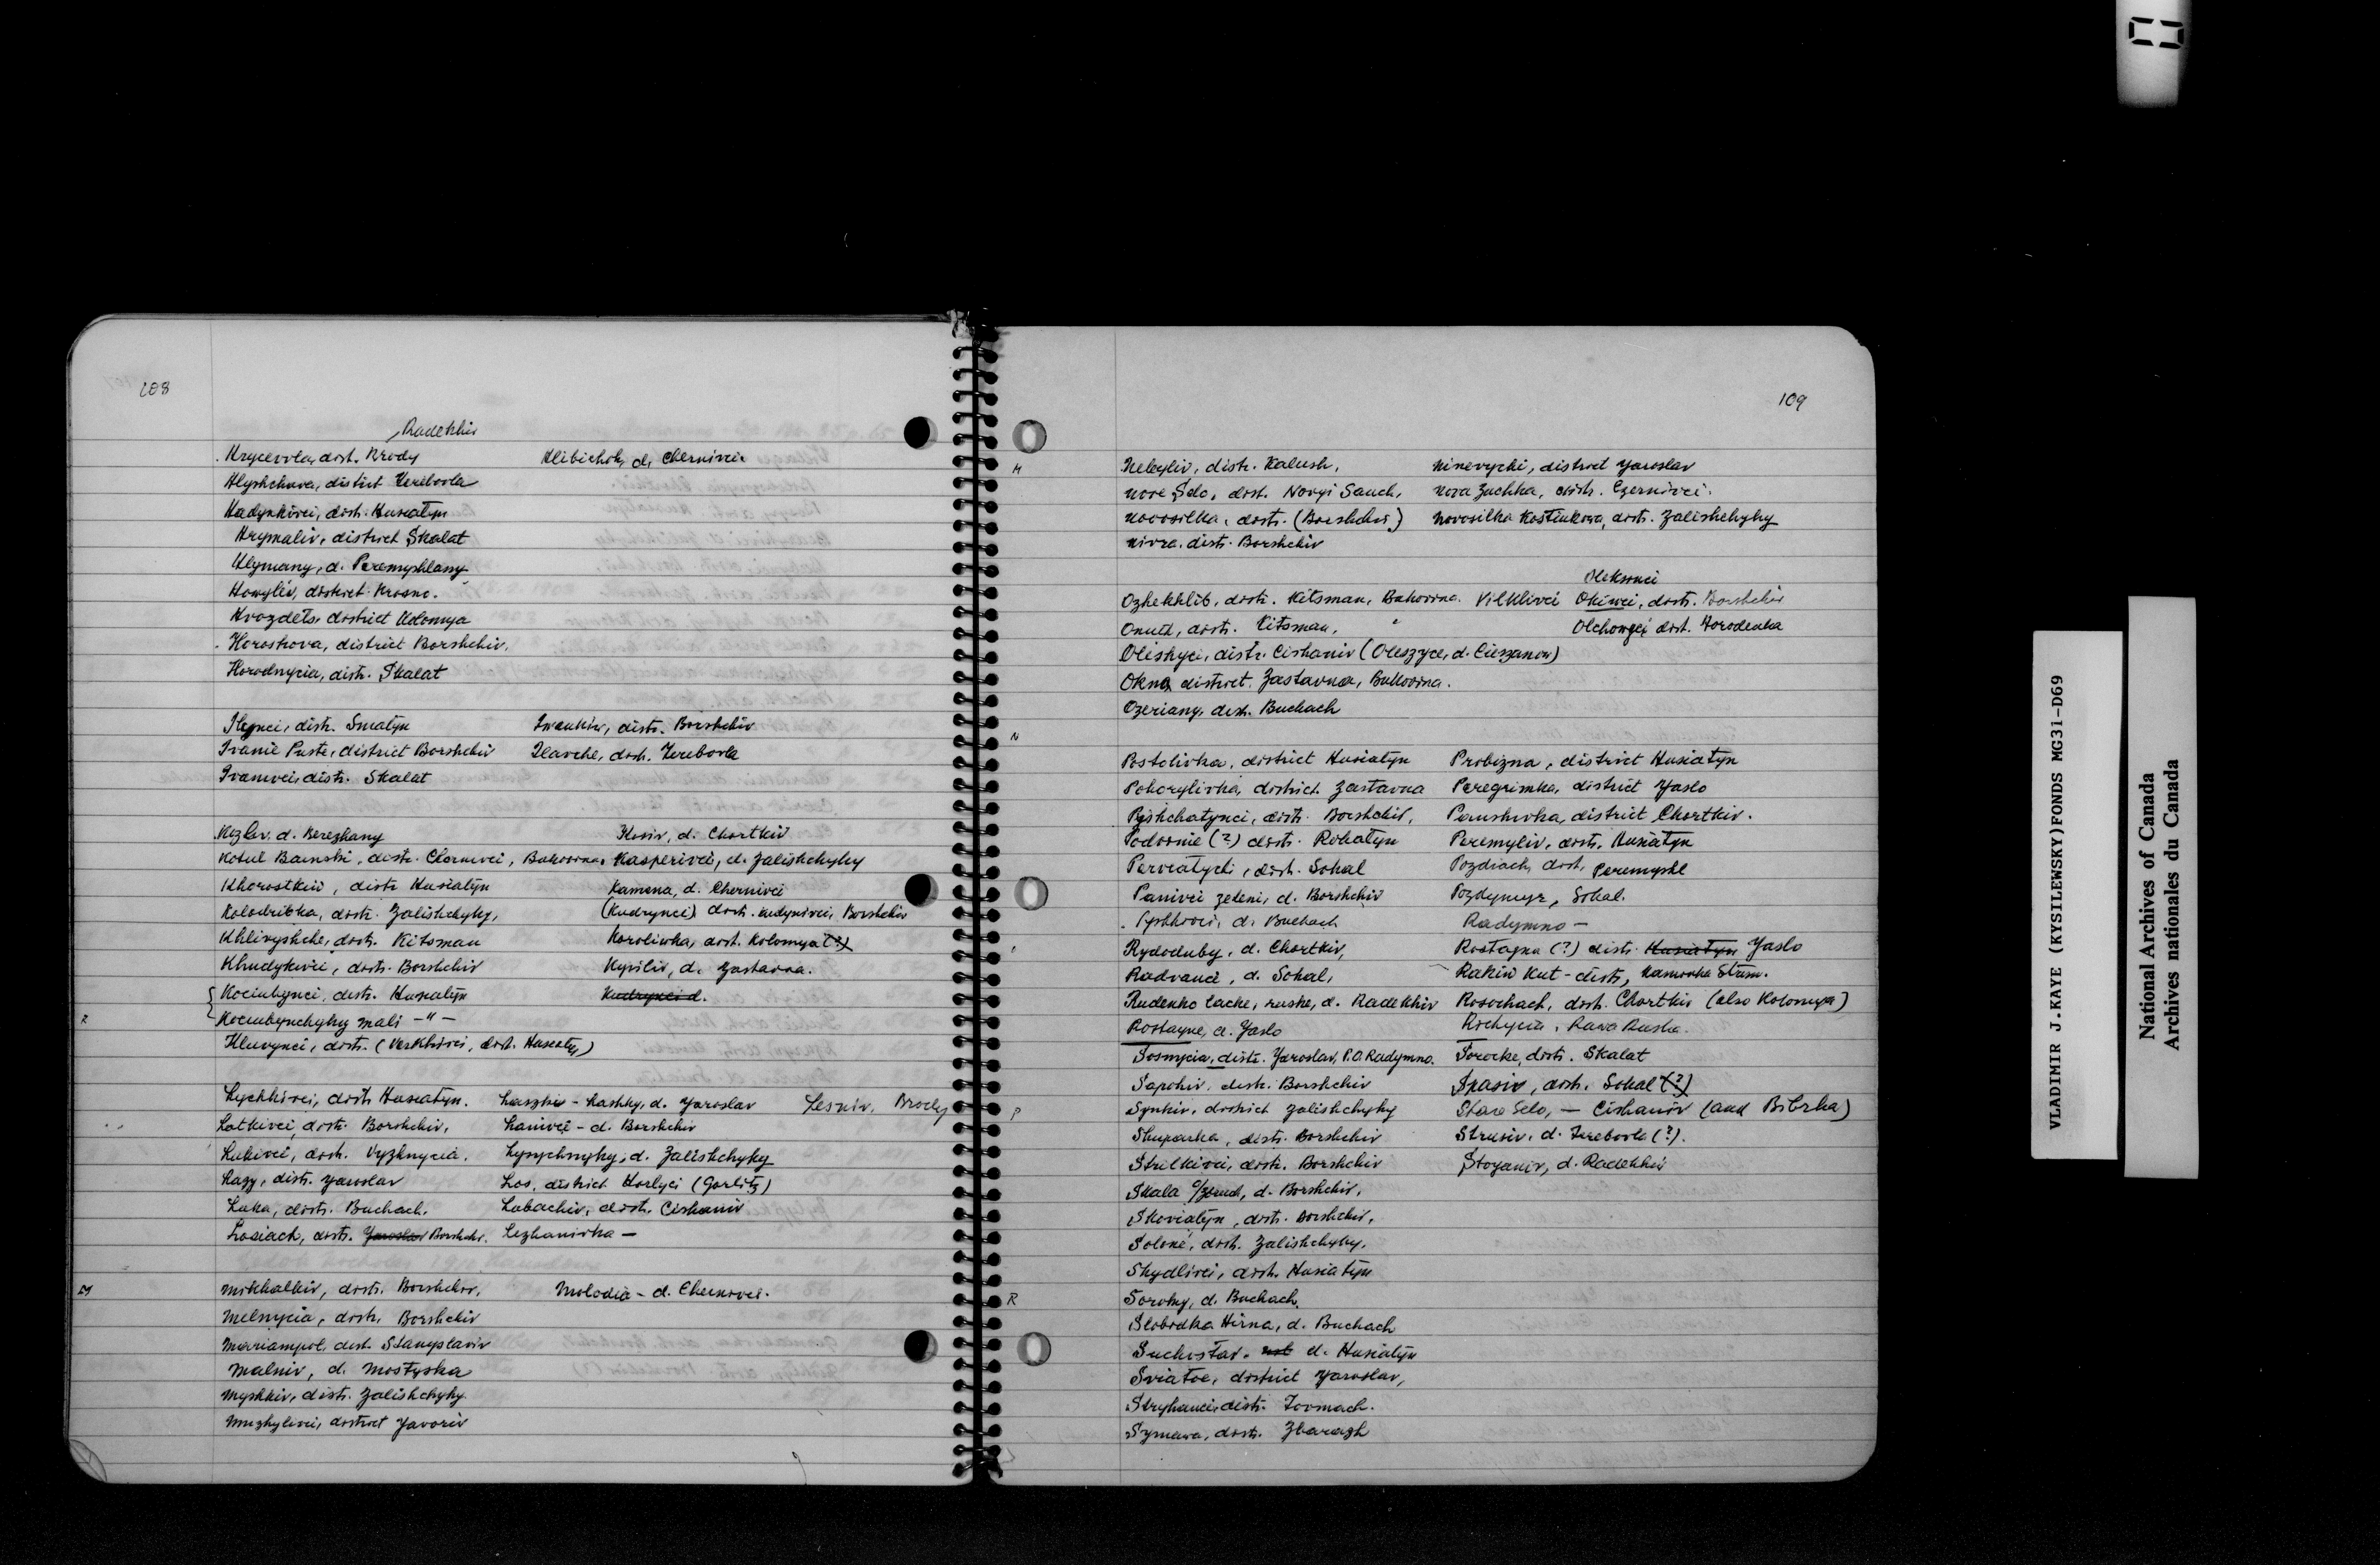 108
Radekhiv
Hrycevola, dist. Brody
Hlibichok, d. Chernivci
Hlyshchava, district Terebovla
Hadynkivci, distr. Husiatyn
Hrymaliv, district Skalat
Hlymany, d. Peremyshlany
Howyliv, district Krosno.
Hvozdets, district Kolomya
Horoshova, district Borshchiv,
Horodnycia, distr. Skalat
Ilynci, distr. Sniatyn
Iwankiw, distr. Borshchiv
Ivanie Puste, district Borshchiv
Ilavche, dist. Terebovla
Ivanivci, distr. Skalat
Kozliv, d. Berezhany
Kosiv, d. Chortkiv
Kotul Bainski, distr. Chernivci, Bukovina.
Kasperivci, d. Zalishchyky
Khorostkiv, distr Husiatyn
Kamena, d. Chernivci
Kolodribka, distr. Zalishchyky,
(Kudrynci) distr. Kudynivci, Borshchiv
Khlivyshche, distr. Kitsman
Korolivka, dist. Kolomya (?)
Khudykivci, distr. Borshchiv
Kysiliv, d. Zastavna.
Kociubynci, distr. Husiatyn
Kudrynci d.
Kociubynchyky mali - " -
Kluvynci, distr. (Verkhivci, dist. Husiatyn)
Lychkivci, distr Husiatyn.
Laszki - Lashky, d. Yaroslav
Lesniv, Brody
Latkivci, distr. Borshchiv,
Lanivci - d. Borshchiv
Lukivci, distr. Vyzhnycia.
Lysychnyky, d. Zalishchyky
Lazy, distr. Yaroslav
Los, district Horlyci (Gorlitz)
Luka, distr. Buchach.
Lubachiv, distr. Cishaniv
Losiach, distr. Yaroslav Borshchiv.
Lezhanivka -
M
Mikhalkiv, distr. Borshchiv,
Molodia - d. Chernivci.
Melnycia, distr. Borshchiv
Mariampol, dist. Stanyslaviv
Malniv, d. Mostyska
Myshkiv, distr. Zalishchyky
Muzhylivci, district Yavoriv
109
Nebyliv, distr. Kalush,
Ninevychi, district Yaroslav
Nove Selo, dist. Novyi Sanch,
Nova Zuchka, distr. Czernivci.
Novosilka, distr. (Borshchiv)
Novosilka Kostiukova, distr. Zalishchyky
Nivra, distr. Borshchiv
Oleksinci
Ozhekhlib, distr. Kitsman, Bukovina.
Vilkhivci Okiwci, distr. Borshchiv
Onut, distr. Kitsman, "
Olchowyci dist. Horodenka
Oleshyci, distr. Cishaniv (Oleszyce, d. Cieszanow)
Okna, district Zastavna, Bukovina.
Ozeriany, dist. Buchach
N
Postolivka, district Husiatyn
Probizna, district Husiatyn
Pohorylivka, district Zastavna
Peregrimka, district Yaslo
Pishchatynci, distr. Borshchiv,
Paushivka, district Chortkiv.
Podvinie (?) distr. Rohatyn
Peremyliv, distr. Husiatyn
Perviatychi, distr. Sokal
Pozdiach, dist. Peremyshl
Panivci zeleni, d. Borshchiv
Pozdymyr, Sokal.
Pyshkivci, d. Buchach
Radymno -
Rydoduby, d. Chortkiv,
Rostayna (?) distr. Husiatyn Yaslo
Radvanci, d. Sokal,
Rakiv Kut - distr, Kamionka Strum.
Rudenko lacke, ruske, d. Radekhiv
Rosochach, dist. Chortkiv (also Kolomya)
Rostayne, d. Yaslo
Richycia, Rawa Ruska.
Sosnycia, distr. Yaroslav, P.O. Radymno.
Sorocke, distr. Skalat
Sapohiv, distr. Borshchiv
Spasiv, distr. Sokal (?)
P
Synkiv, district Zalishchyky
Stare Selo, - Cishaniv (and Bibrka)
Shuparka, distr. Borshchiv
Strusiv, d. Terebovla (?).
Strilkivci, distr. Borshchiv
Stoyaniv, d. Radekhiv
Skala d. Borshchiv,
Skoviatyn, distr. Borshchiv,
Solone, distr. Zalishchyky,
Shydlivci, distr. Husiatyn
R
Soroky, d. Buchach
Slobodka Hirna, d. Buchach
Suchostav, d. Husiatyn
Sviatoe, district Yaroslav,
Stryhanci, distr. Tovmach.
Symawa, distr. Zbarazh
VLADIMIR J.KAYE (KYSILEWSKY)FONDS MG31-D69
National Archives of Canada
Archives nationales du Canada